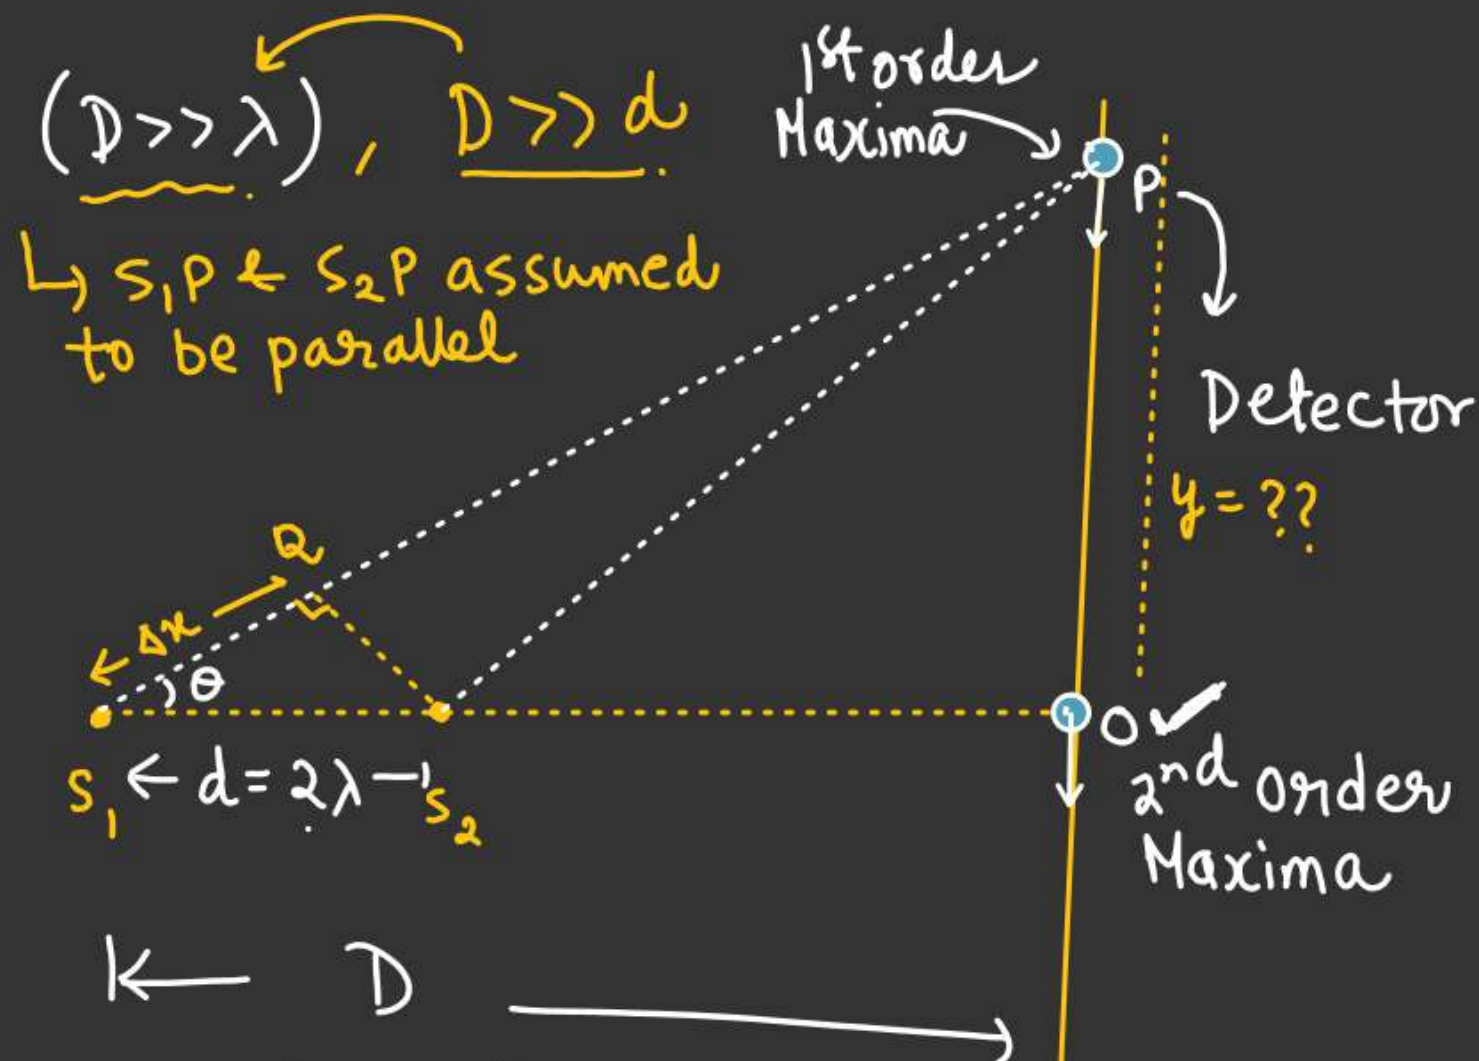 (D>>λ), D>>d
↳ S₁P & S₂P assumed
to be parallel
1st order
Maxima
P
Detector
y = ??
Q
Δx
θ
S₁ ← d = 2λ → S₂
O ✓
2nd order
Maxima
D